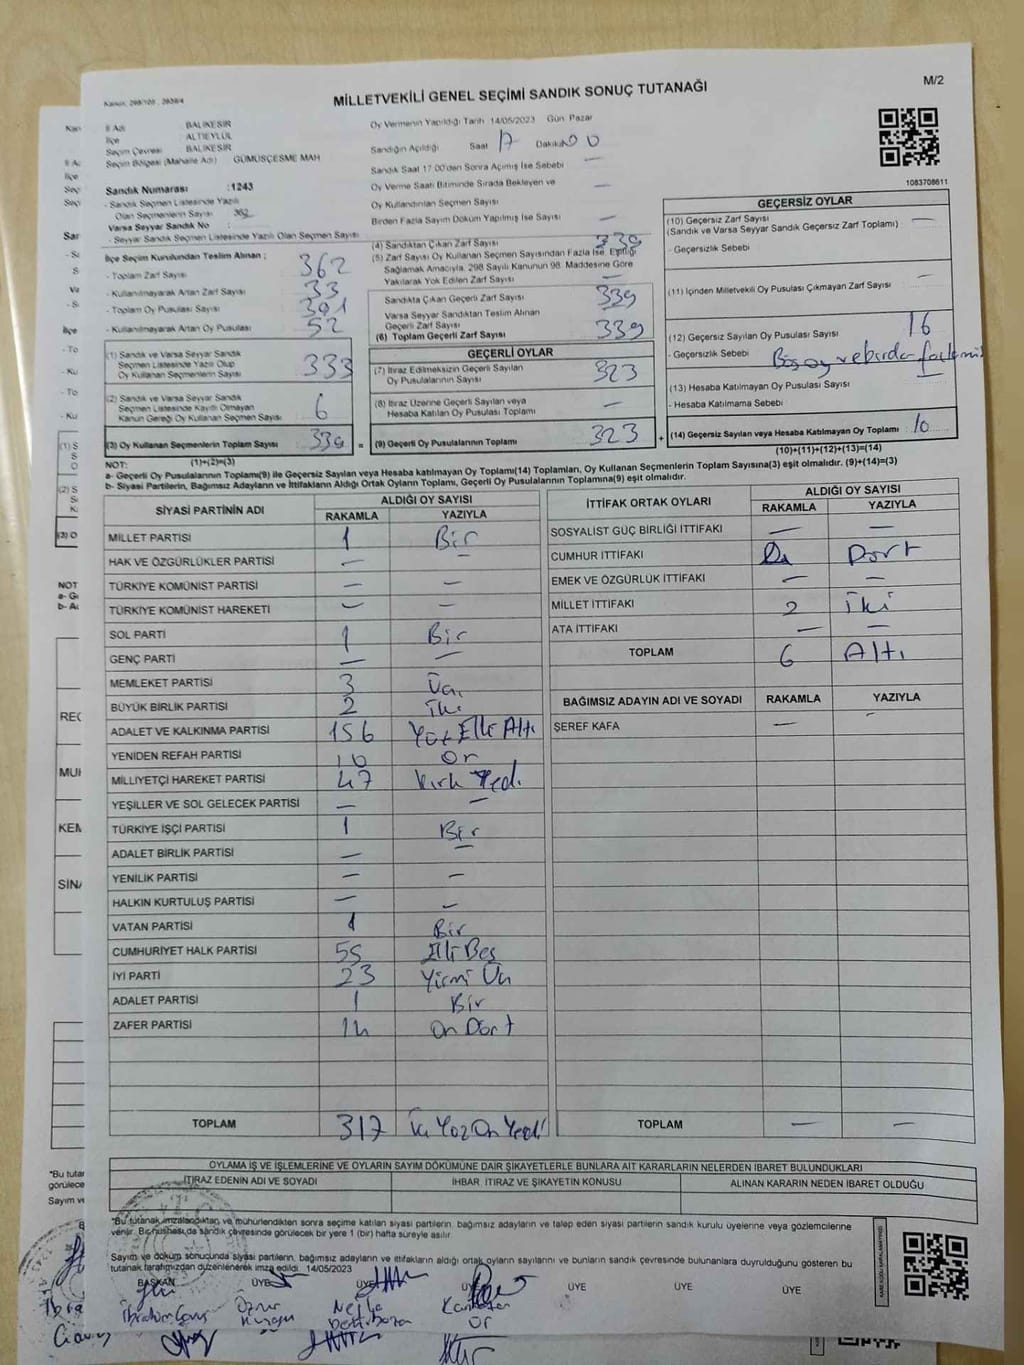 M/2
Kanun: 298/105 , 2839/4
MİLLETVEKİLİ GENEL SEÇİMİ SANDIK SONUÇ TUTANAĞI
İl Adı BALIKESİR
İlçe ALTIEYLÜL
Seçim Çevresi BALIKESİR
Seçim Bölgesi (Mahalle Adı) GÜMÜŞÇEŞME MAH
Sandık Numarası :1243
- Sandık Seçmen Listesinde Yazılı
Olan Seçmenlerin Sayısı 362
Varsa Seyyar Sandık No :
- Seyyar Sandık Seçmen Listesinde Yazılı Olan Seçmen Sayısı
İlçe Seçim Kurulundan Teslim Alınan ;
- Toplam Zarf Sayısı 362
- Kullanılmayarak Artan Zarf Sayısı 33
- Toplam Oy Pusulası Sayısı 391
- Kullanılmayarak Artan Oy Pusulası 52
(1) Sandık ve Varsa Seyyar Sandık
Seçmen Listesinde Yazılı Olup
Oy Kullanan Seçmenlerin Sayısı 333
(2) Sandık ve Varsa Seyyar Sandık
Seçmen Listesinde Kayıtlı Olmayan
Kanun Gereği Oy Kullanan Seçmen Sayısı 6
(3) Oy Kullanan Seçmenlerin Toplam Sayısı 339
(1)+(2)=(3)
Oy Vermenin Yapıldığı Tarih 14/05/2023 Gün Pazar
Sandığın Açıldığı Saat 17 Dakika 00
Sandık Saat 17.00'den Sonra Açımış İse Sebebi —
Oy Verme Saati Bitiminde Sırada Bekleyen ve
Oy Kullandırılan Seçmen Sayısı —
Birden Fazla Sayım Döküm Yapılmış İse Sayısı —
(4) Sandıktan Çıkan Zarf Sayısı 339
(5) Zarf Sayısı Oy Kullanan Seçmen Sayısından Fazla İse, Eşitliği
Sağlamak Amacıyla, 298 Sayılı Kanunun 98. Maddesine Göre
Yakılarak Yok Edilen Zarf Sayısı —
Sandıkta Çıkan Geçerli Zarf Sayısı 339
Varsa Seyyar Sandıktan Teslim Alınan
Geçerli Zarf Sayısı
(6) Toplam Geçerli Zarf Sayısı 339
GEÇERLİ OYLAR
(7) İtiraz Edilmeksizin Geçerli Sayılan
Oy Pusulalarının Sayısı 323
(8) İtiraz Üzerine Geçerli Sayılan veya
Hesaba Katılan Oy Pusulası Toplamı —
= (9) Geçerli Oy Pusulalarının Toplamı 323 +
1083708611
GEÇERSİZ OYLAR
(10) Geçersiz Zarf Sayısı —
(Sandık ve Varsa Seyyar Sandık Geçersiz Zarf Toplamı)
- Geçersizlik Sebebi
(11) İçinden Milletvekili Oy Pusulası Çıkmayan Zarf Sayısı —
(12) Geçersiz Sayılan Oy Pusulası Sayısı 16
- Geçersizlik Sebebi Boş oy ve birden
(13) Hesaba Katılmayan Oy Pusulası Sayısı —
- Hesaba Katılmama Sebebi
(14) Geçersiz Sayılan veya Hesaba Katılmayan Oy Toplamı :
(10)+(11)+(12)+(13)=(14)
NOT:
a- Geçerli Oy Pusulalarının Toplamı(9) ile Geçersiz Sayılan veya Hesaba katılmayan Oy Toplamı(14) Toplamları, Oy Kullanan Seçmenlerin Toplam Sayısına(3) eşit olmalıdır. (9)+(14)=(3)
b- Siyasi Partilerin, Bağımsız Adayların ve İttifakların Aldığı Ortak Oyların Toplamı, Geçerli Oy Pusulalarının Toplamına(9) eşit olmalıdır.
SİYASİ PARTİNİN ADI ALDIĞI OY SAYISI
RAKAMLA YAZIYLA
MİLLET PARTİSİ 1 Bir
HAK VE ÖZGÜRLÜKLER PARTİSİ — —
TÜRKİYE KOMÜNİST PARTİSİ — —
TÜRKİYE KOMÜNİST HAREKETİ — —
SOL PARTİ 1 Bir
GENÇ PARTİ — —
MEMLEKET PARTİSİ 3 Üç
BÜYÜK BİRLİK PARTİSİ 2 iki
ADALET VE KALKINMA PARTİSİ 156 Yüz Elli Altı
YENİDEN REFAH PARTİSİ 10 On
MİLLİYETÇİ HAREKET PARTİSİ 47 Kırk Yedi
YEŞİLLER VE SOL GELECEK PARTİSİ — —
TÜRKİYE İŞÇİ PARTİSİ 1 Bir
ADALET BİRLİK PARTİSİ — —
YENİLİK PARTİSİ — —
HALKIN KURTULUŞ PARTİSİ — —
VATAN PARTİSİ 1 Bir
CUMHURİYET HALK PARTİSİ 55 Elli Beş
İYİ PARTİ 23 Yirmi Üç
ADALET PARTİSİ 1 Bir
ZAFER PARTİSİ 14 On Dört
TOPLAM 317 Üç Yüz On Yedi
İTTİFAK ORTAK OYLARI ALDIĞI OY SAYISI
RAKAMLA YAZIYLA
SOSYALİST GÜÇ BİRLİĞİ İTTİFAKI — —
CUMHUR İTTİFAKI Dört
EMEK VE ÖZGÜRLÜK İTTİFAKI — —
MİLLET İTTİFAKI 2 İki
ATA İTTİFAKI — —
TOPLAM 6 Altı
BAĞIMSIZ ADAYIN ADI VE SOYADI RAKAMLA YAZIYLA
ŞEREF KAFA — -
TOPLAM — —
OYLAMA İŞ VE İŞLEMLERİNE VE OYLARIN SAYIM DÖKÜMÜNE DAİR ŞİKAYETLERLE BUNLARA AİT KARARLARIN NELERDEN İBARET BULUNDUKLARI
İTİRAZ EDENİN ADI VE SOYADI İHBAR, İTİRAZ VE ŞİKAYETİN KONUSU ALINAN KARARIN NEDEN İBARET OLDUĞU
*Bu tutanak imzalandıktan ve mühürlendikten sonra seçime katılan siyasi partilerin, bağımsız adayların ve talep eden siyasi partilerin sandık kurulu üyelerine veya gözlemcilerine
verilir. Bir nüshası da sandık çevresinde görülecek bir yere 1 (bir) hafta süreyle asılır.
Sayım ve döküm sonucunda siyasi partilerin, bağımsız adayların ve ittifakların aldığı ortak oyların sayılarını ve bunların sandık çevresinde bulunanlara duyrulduğunu gösteren bu
tutanak tarafımızdan düzenlenerek imza edildi. 14/05/2023
BAŞKAN ÜYE ÜYE ÜYE ÜYE ÜYE ÜYE